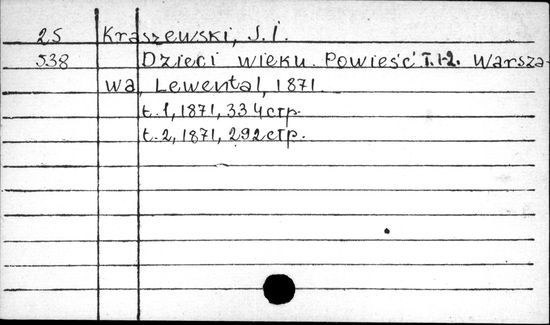 25 Kraszewski, J. I.
538 Dzieci wieku. Powieść T. 1-2. Warsza-
wa, Lewental, 1871.
t. 1, 1871, 334 стр.
t. 2, 1871, 292 стр.